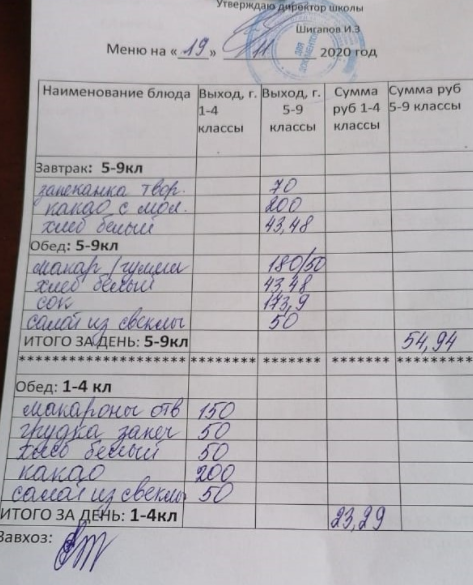 Утверждаю директор школы
Шигапов И.З
Меню на « 19 » 11 2020 год
Наименование блюда Выход, г. 1-4 классы Выход, г. 5-9 классы Сумма руб 1-4 классы Сумма руб 5-9 классы
Завтрак: 5-9кл
запеканка твор. 70
какао с мол. 200
хлеб белый 43,48
Обед: 5-9кл
макар/гуляш 180/50
хлеб белый 43,48
сок 173,9
салат из свеклы 50
ИТОГО ЗА ДЕНЬ: 5-9кл 54,94
****************** ******** ******** ******* *********
Обед: 1-4 кл
макароны отв 150
грудка запеч 50
хлеб белый 50
какао 200
салат из свеклы 50
ИТОГО ЗА ДЕНЬ: 1-4кл 23,29
Завхоз: